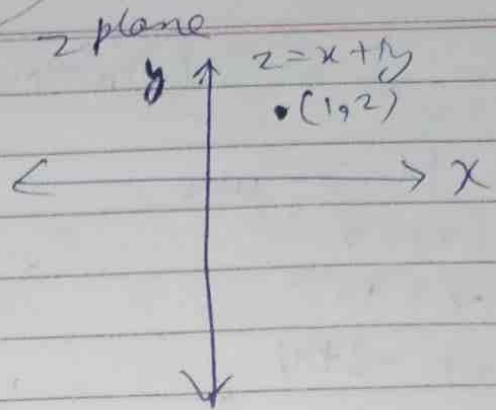 z plane
y z = x + iy
• (1,2)
x